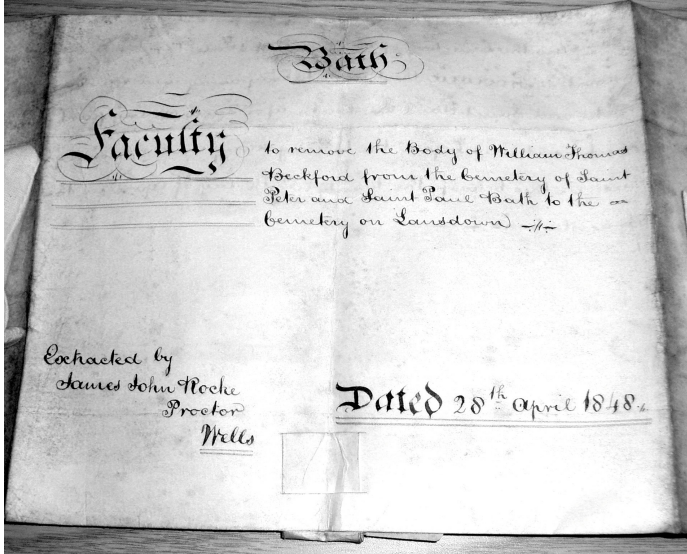 Bath
Faculty
to remove the Body of William Thomas
Beckford from the Cemetery of Saint
Peter and Saint Paul Bath to the
Cemetery on Lansdown
Extracted by
James John Rocke
Proctor
Wells
Dated 28th April 1848.